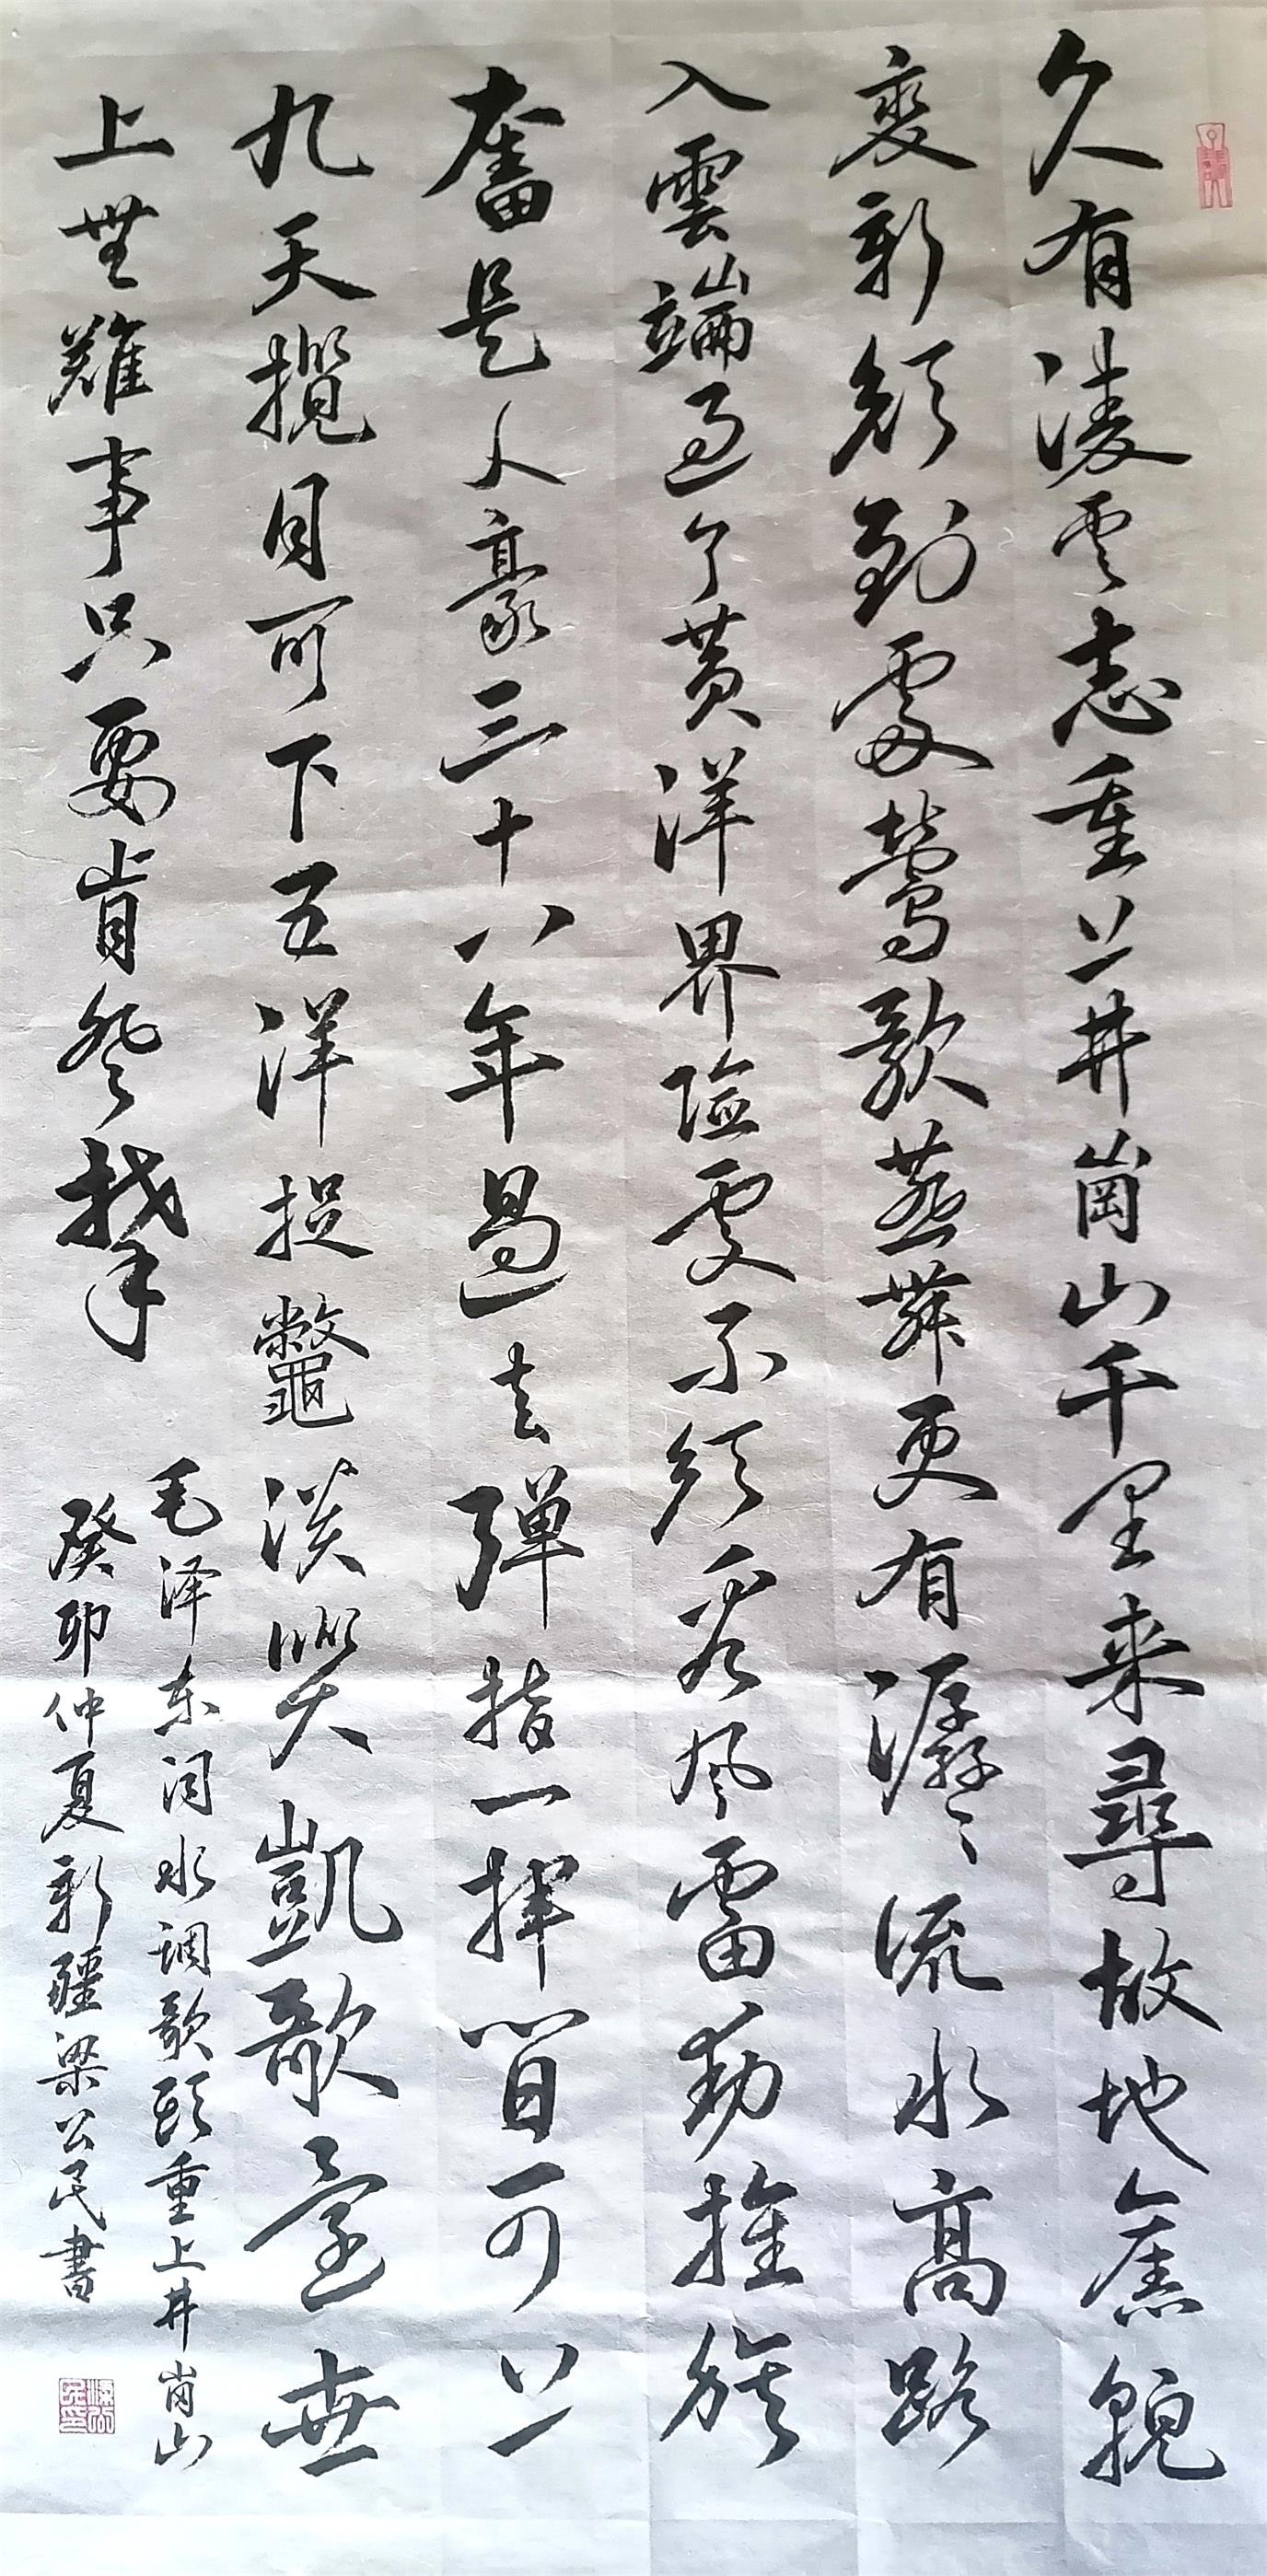 久有淩云志重上井崗山千里来尋故地舊貌
變新顏到處鶯歌燕舞更有潺々流水高路
入雲端過了黄洋界险處不須看风雷動旌旗
奮是人豪三十八年過去彈指一揮間可上
九天攬月可下五洋捉鱉談笑凱歌還世
上無難事只要肯登攀
毛泽东词水调歌頭重上井崗山
癸卯仲夏新疆梁公民書